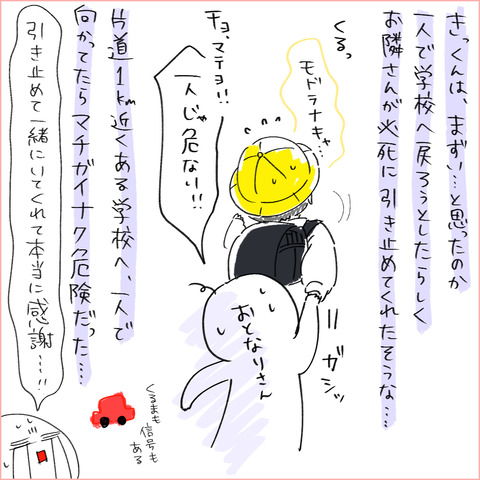 きっくんは、まずい…と思ったのか
一人で学校へ戻ろうとしたらしく
お隣さんが必死に引き止めてくれたそうな…
くるっ
モドラナキャ…
チョ、マテヨ!!
一人じゃ危ない!!
ガシッ
おとなりさん
片道1km近くある学校へ、一人で
向かってたらマチガイナク危険だった…
引き止めて一緒にいてくれて本当に感謝…!!
くるまも
信号も
ある